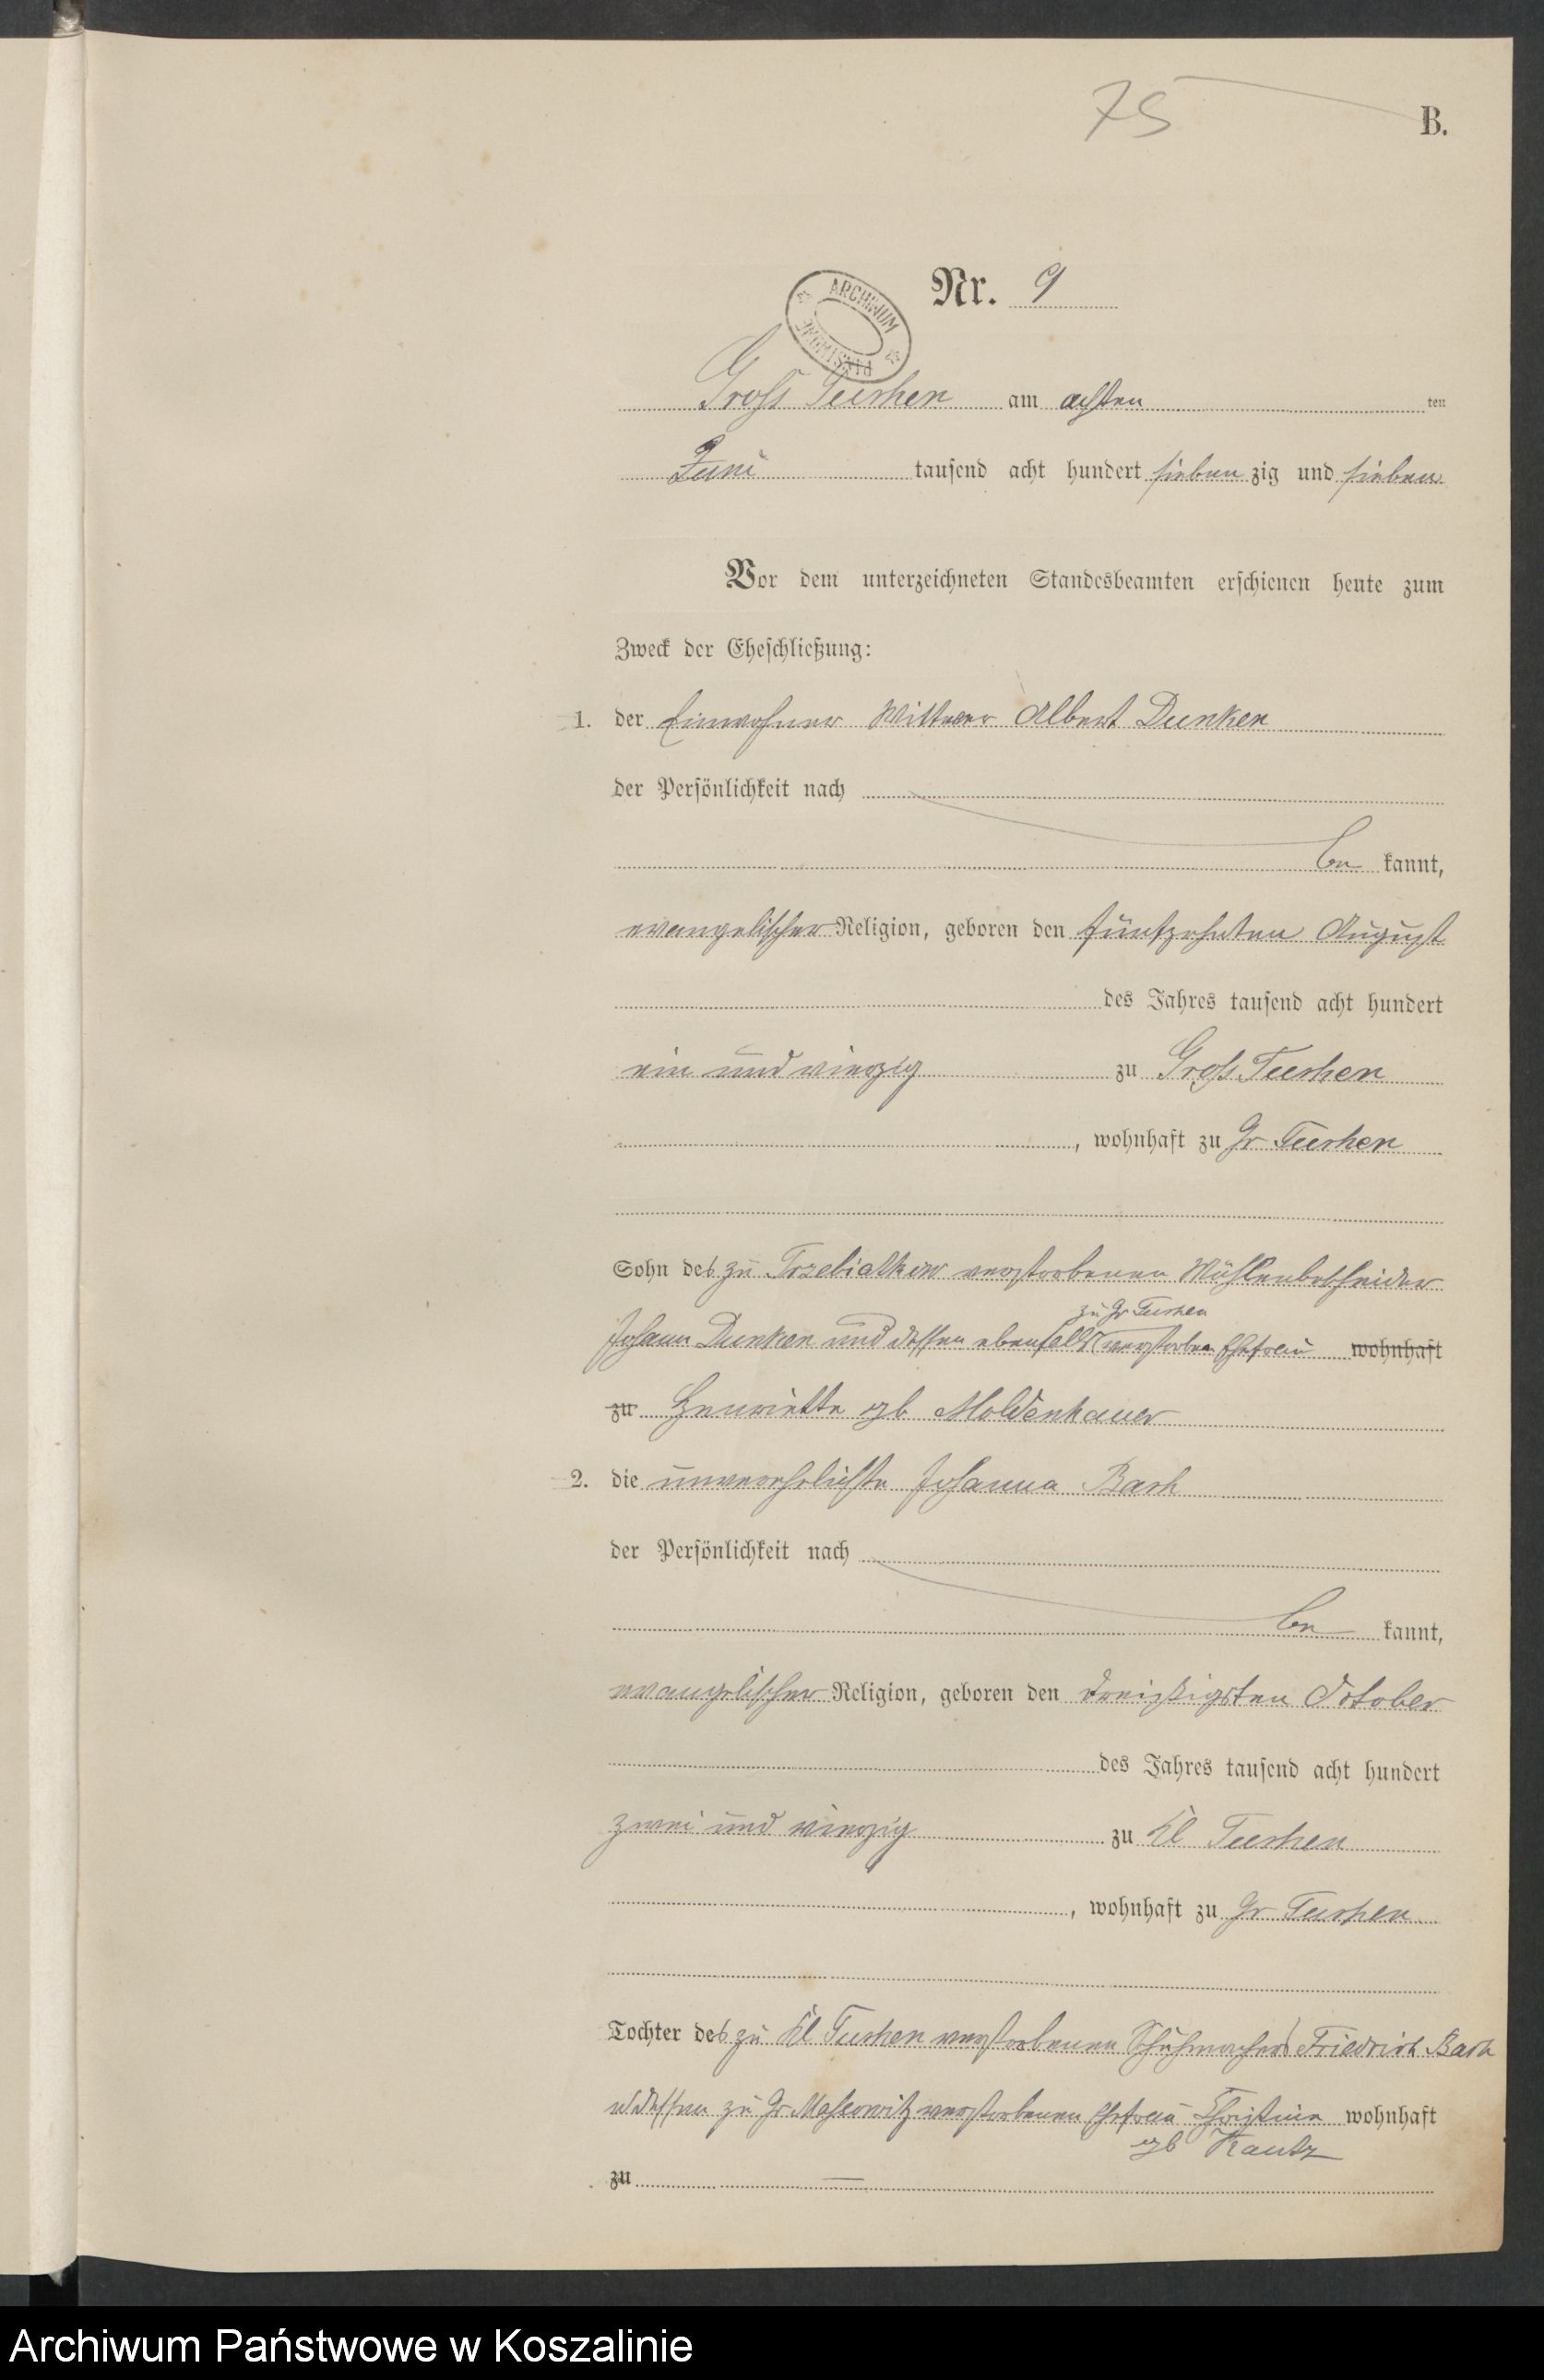 75
B.
Nr. 9
ARCHIWUM PAŃSTWOWE
Gross Tuchen am achten ten
Juni tausend acht hundert siebenzig und sieben
Vor dem unterzeichneten Standesbeamten erschienen heute zum
Zweck der Eheschließung:
1. der Einwohner Wittwer Albert Dunken
der Persönlichkeit nach
be kannt,
evangelischer Religion, geboren den fünfzehnten August
des Jahres tausend acht hundert
ein und vierzig zu Gross Tuchen
, wohnhaft zu Gr Tuchen
Sohn des zu Trzebiatkow verstorbenen Mühlenbescheider
zu Gr Tuchen
Johann Dunken und dessen ebenfalls verstorben Ehefrau wohnhaft
zu Henriette gb Moldenhauer
2. die unverehelichte Johanna Bach
der Persönlichkeit nach
be kannt,
evangelischer Religion, geboren den dreißigsten October
des Jahres tausend acht hundert
zwei und vierzig zu Kl Tuchen
, wohnhaft zu Gr Tuchen
Tochter des zu Kl Tuchen verstorbenen Schuhmachers Friedrich Bach
u dessen zu Gr. Massowitz verstorbenen Ehefrau Christine wohnhaft
gb Kautz
zu
Archiwum Państwowe w Koszalinie